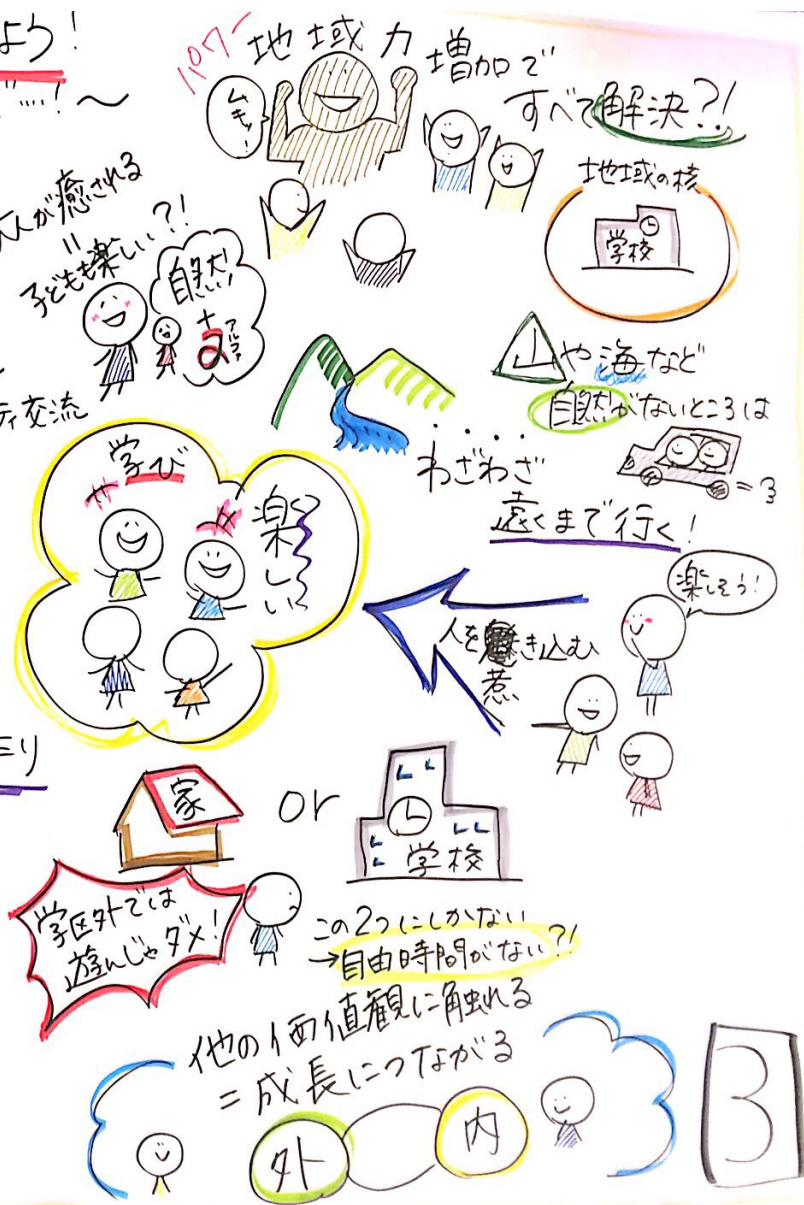 よう！
…！～
パワー
地域力増加で
すべて解決？！
ムキッー
地域の核
学校
大人が癒される
＝
子どもも楽しい？！
自然
＋
α
アルファ
ティ交流
山や海など
自然がないところは
わざわざ
遠くまで行く！
学び
楽しい
楽しそう！
人を惹き込む
ミリ
家
or
学校
学区外では
遊んじゃダメ！
この2つにしかない
→自由時間がない？！
他の価値観に触れる
＝成長につながる
外
内
3